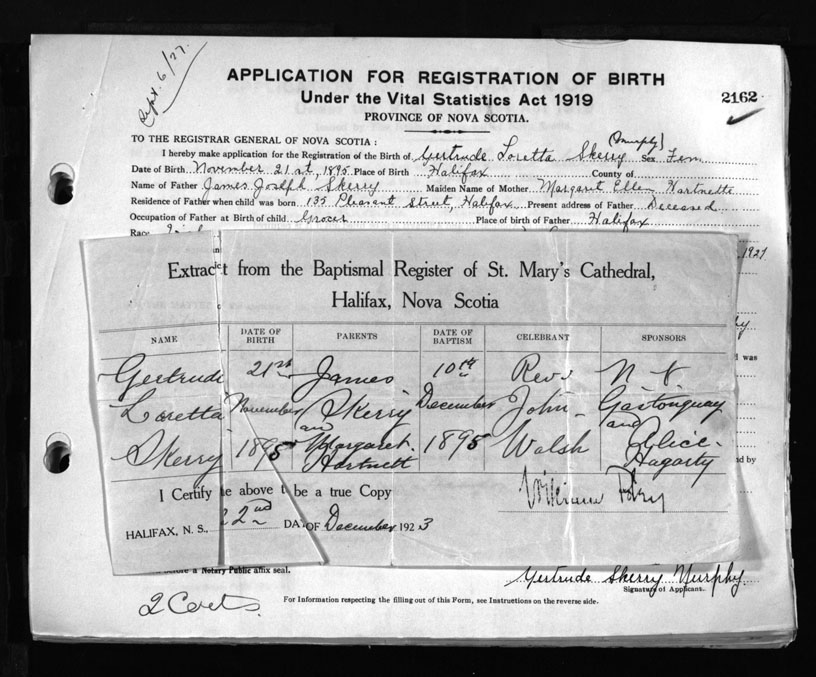 Sept. 6/27.
APPLICATION FOR REGISTRATION OF BIRTH
Under the Vital Statistics Act 1919
2162
PROVINCE OF NOVA SCOTIA.
TO THE REGISTRAR GENERAL OF NOVA SCOTIA :
(Murphy)
I hereby make application for the Registration of the Birth of Gertrude Loretta Skerry Sex Fem
Date of Birth November 21st, 1895 Place of Birth Halifax County of
Name of Father James Joseph Skerry Maiden Name of Mother Margaret Ellen Hartnette
Residence of Father when child was born 135 Pleasant Street, Halifax Present address of Father Deceased
Occupation of Father at Birth of child Grocer Place of birth of Father Halifax
Race
1927
Extract from the Baptismal Register of St. Mary's Cathedral,
Halifax, Nova Scotia
NAME DATE OF BIRTH PARENTS DATE OF BAPTISM CELEBRANT SPONSORS
Gertrude 21st James 10th Rev.
Loretta November Skerry December John Gastonguay
and and
Skerry 1895 Margaret Hartnett 1895 Walsh Alice Hagarty
was
ed by
I Certify the above to be a true Copy
William
HALIFAX, N. S., 22nd DAY OF December 1923
before a Notary Public affix seal.
Gertrude Skerry Murphy.
Signature of Applicant.
2 Certs.
For Information respecting the filling out of this Form, see Instructions on the reverse side.